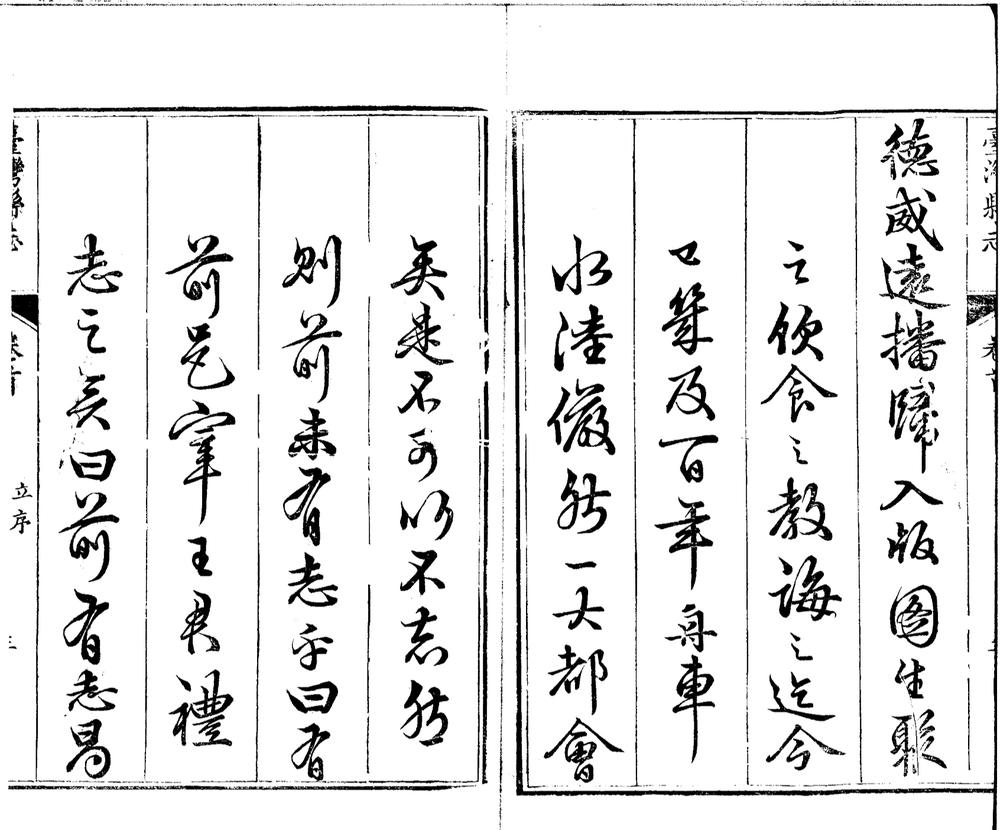 臺灣縣志 卷首
德威遠播歸入版圖生聚
之飲食之教誨之迄今
已幾及百年舟車
水陸儼然一大都會
矣是不可以不志然
則前未有志乎曰有
前邑宰王君禮
志之矣曰前有志曷
臺灣縣志 卷首 立序